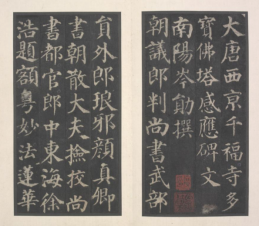 大唐西京千福寺多
寶佛塔感應碑文
南陽岑勛撰
朝議郎判尚書武部
員外郎琅邪顏真卿
書朝散大夫撿挍尚
書都官郎中東海徐
浩題額粵妙法蓮華